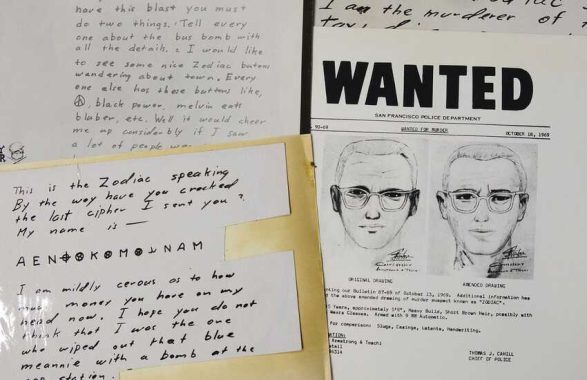 have this blast you must
do two things. Tell every
one about the bus bomb with
all the details. 2 I would like
to see some nice Zodiac butons
wandering about town. Every
one else has these buttons like,
black power, melvin eats
blaber, etc. Well it would cheer
me up considerbly if I saw
a lot of people
I am the murderer of
This is the Zodiac speaking
By the way have you cracked
the last cipher I sent you?
My name is —
A E N ⊕ K M N A M
I am mildly cerous as to how
much money you have on my
head now. I hope you do not
think that I was the one
who wiped out that blue
meannie with a bomb at the
cop station.
WANTED
SAN FRANCISCO POLICE DEPARTMENT
90-69 WANTED FOR MURDER OCTOBER 18, 1969
ORIGINAL DRAWING AMENDED DRAWING
our Bulletin 87-69 of October 13, 1969. Additional information has
the above amended drawing of murder suspect known as "ZODIAC".
Years, approximately Heavy Build, Short Brown Hair, possibly with
Glasses. Armed with 9 MM Automatic.
for comparison: Slugs, Casings, Latents, Handwriting.
Armstrong & Toschi
THOMAS J. CAHILL
CHIEF OF POLICE